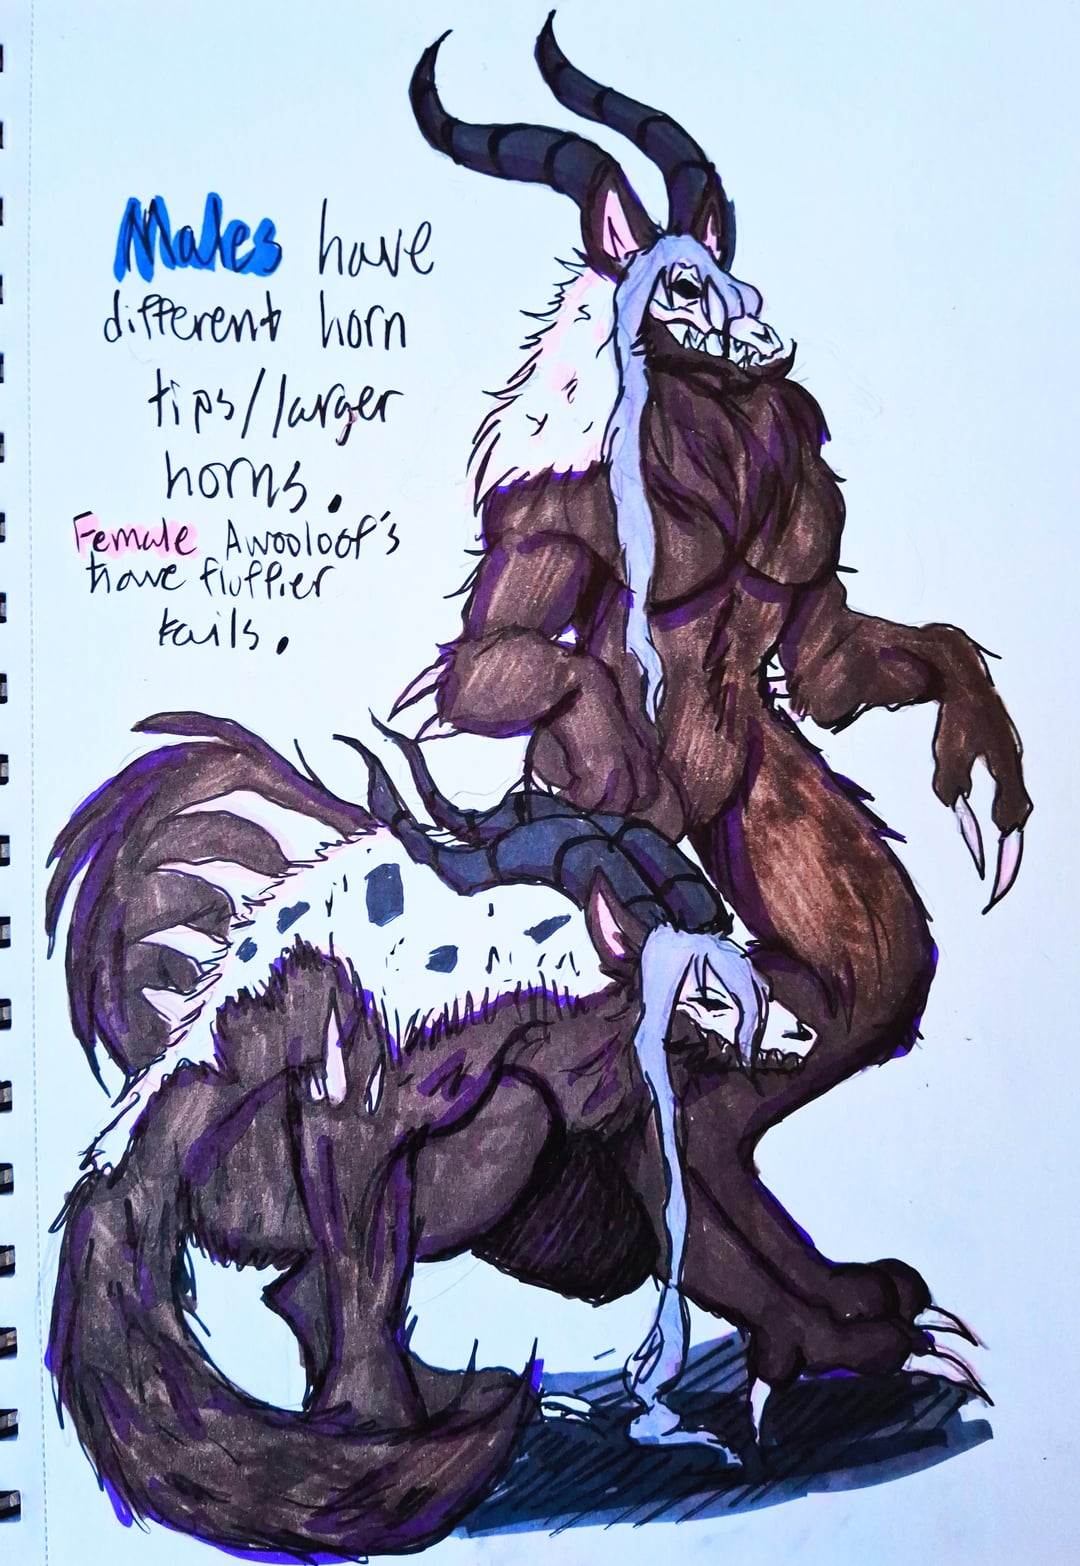 Males have
different horn
tips/larger
horns.
Female Awooloof's
have fluffier
tails.